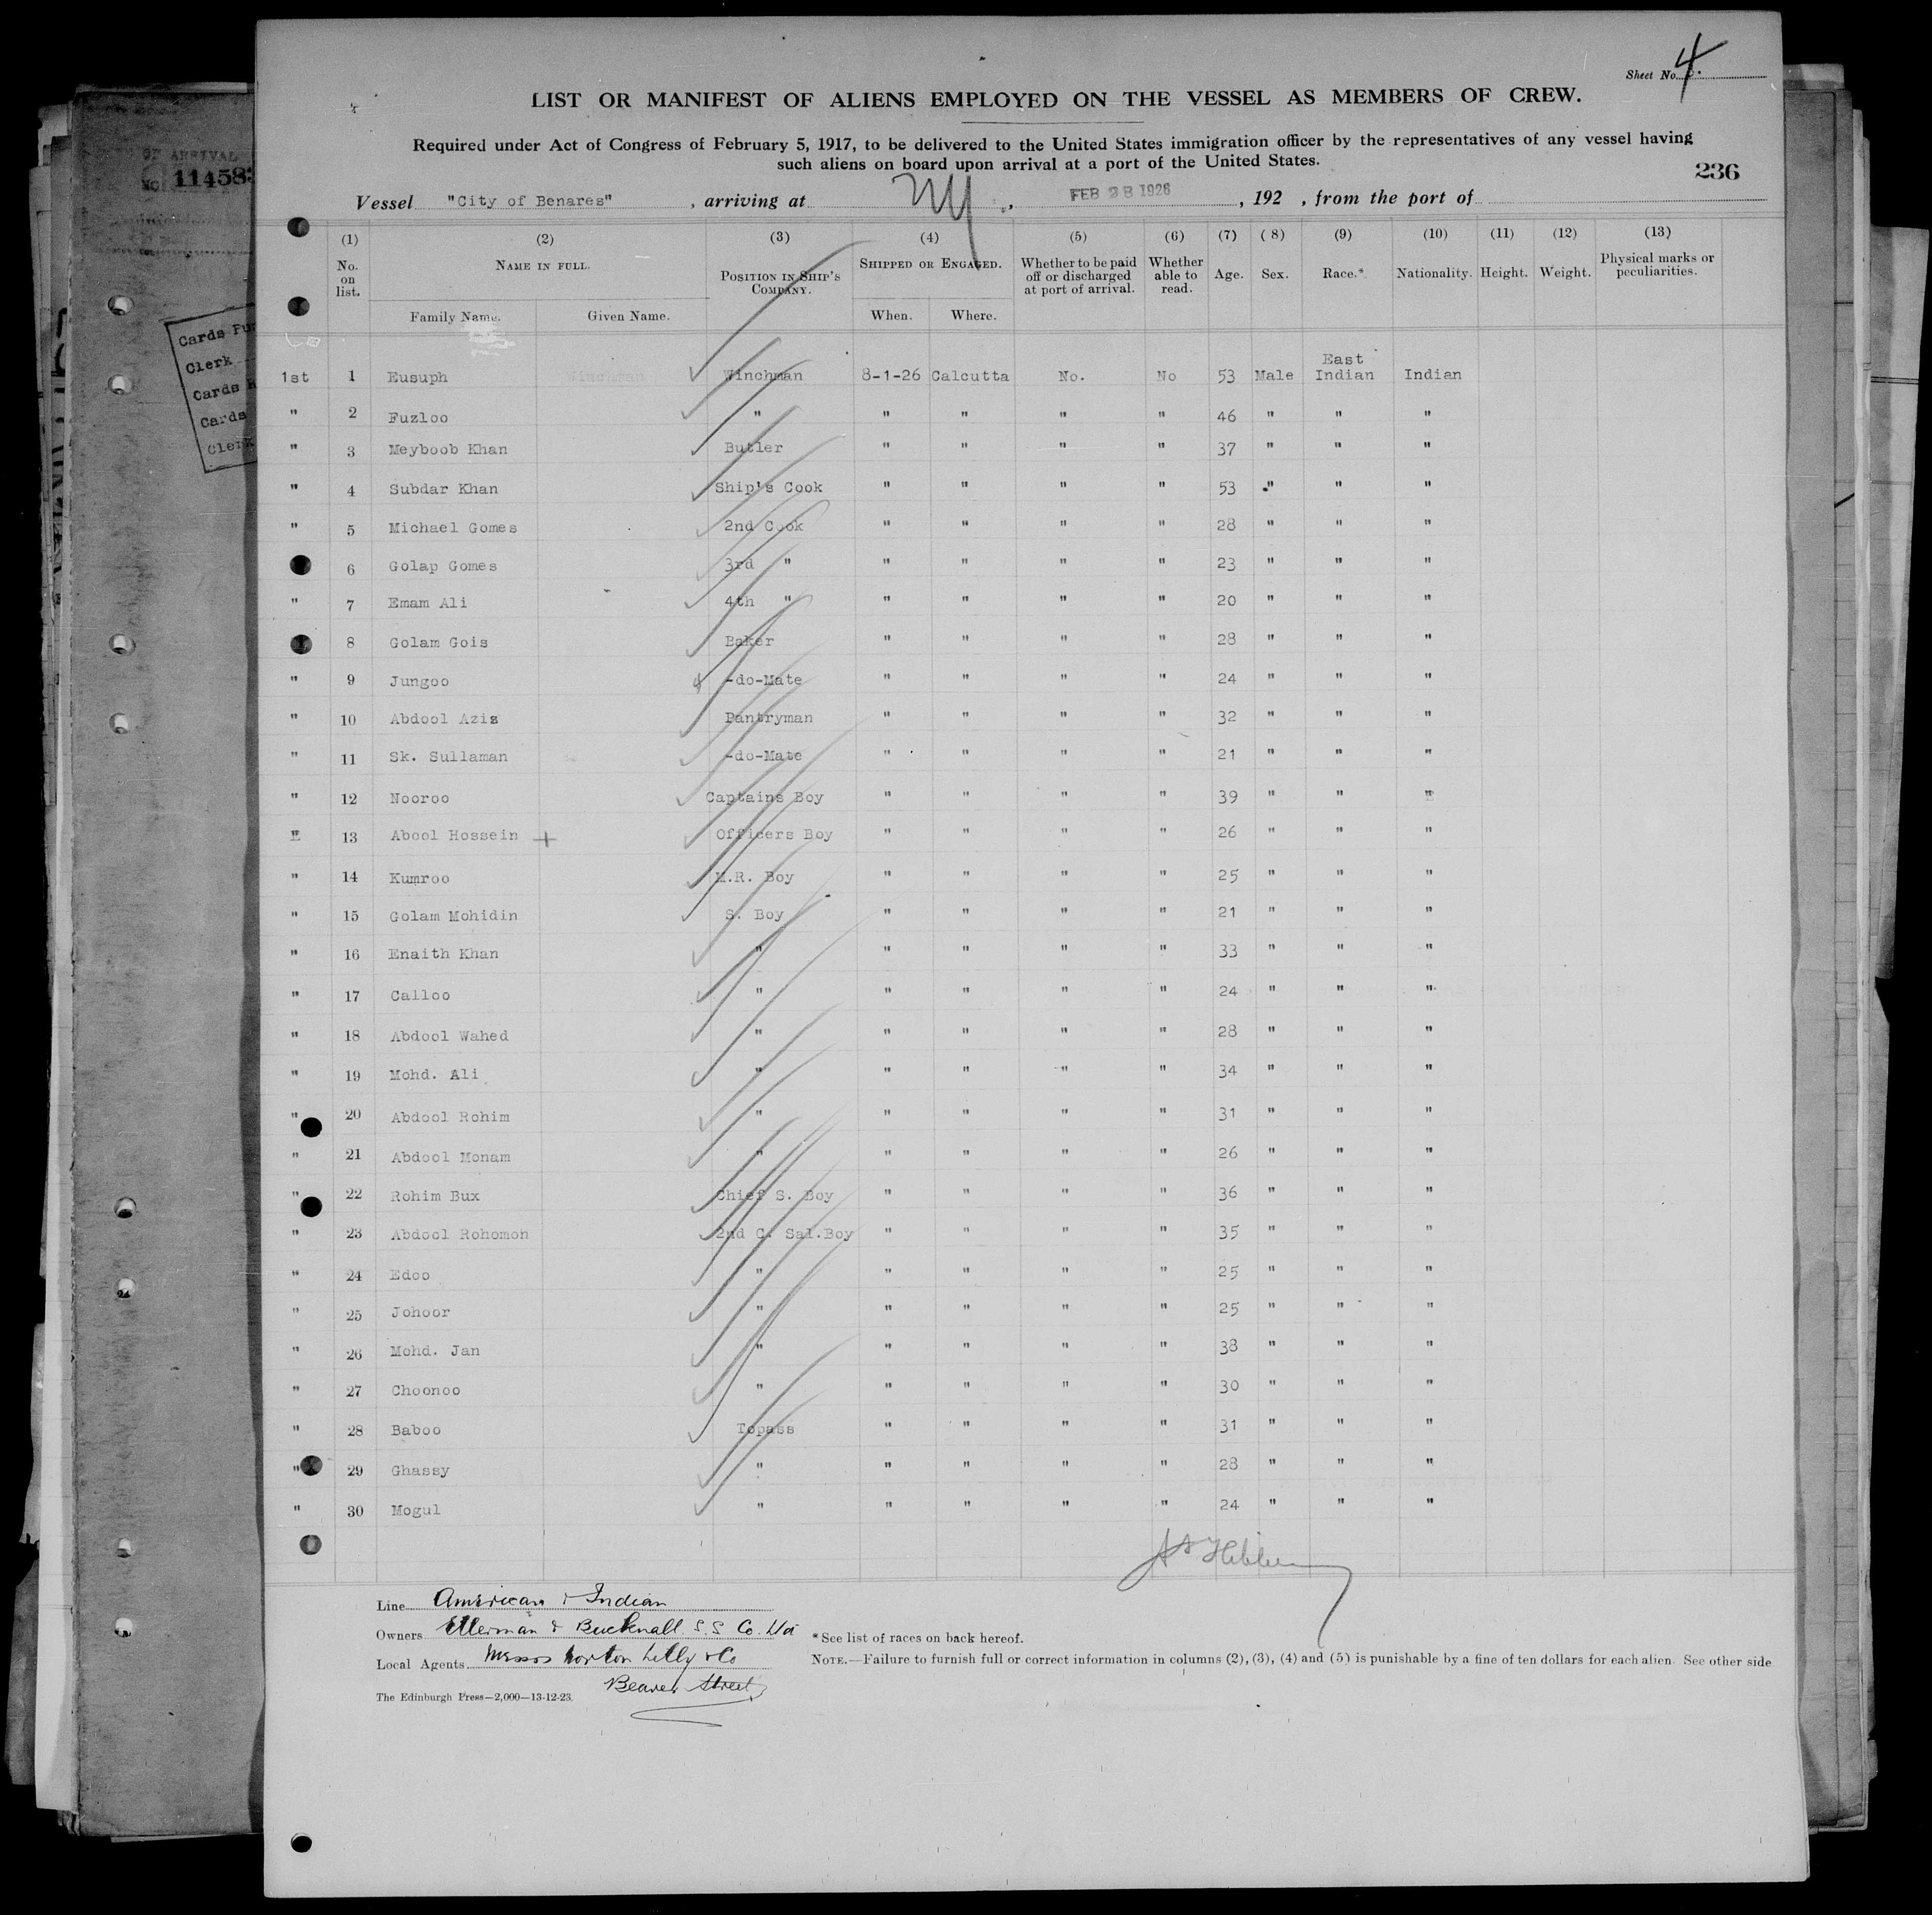 Sheet No. 4.
LIST OR MANIFEST OF ALIENS EMPLOYED ON THE VESSEL AS MEMBERS OF CREW.
Required under Act of Congress of February 5, 1917, to be delivered to the United States immigration officer by the representatives of any vessel having
such aliens on board upon arrival at a port of the United States.
236
Vessel "City of Benares", arriving at NY, FEB 28 1926, 192 , from the port of
(1) (2) (3) (4) (5) (6) (7) (8) (9) (10) (11) (12) (13)
No. on list. NAME IN FULL. POSITION IN SHIP'S COMPANY. SHIPPED OR ENGAGED. Whether to be paid off or discharged at port of arrival. Whether able to read. Age. Sex. Race.* Nationality. Height. Weight. Physical marks or peculiarities.
Family Name. Given Name. When. Where.
1st 1 Eusuph Winchman 8-1-26 Calcutta No. No 53 Male East Indian Indian
" 2 Fuzloo " " " " " 46 " " "
" 3 Meyboob Khan Butler " " " " 37 " " "
" 4 Subdar Khan Ship's Cook " " " " 53 " " "
" 5 Michael Gomes 2nd Cook " " " " 28 " " "
6 Golap Gomes 3rd " " " " " 23 " " "
" 7 Emam Ali 4th " " " " " 20 " " "
8 Golam Gois Baker " " " " 28 " " "
" 9 Jungoo -do-Mate " " " " 24 " " "
" 10 Abdool Aziz Pantryman " " " " 32 " " "
" 11 Sk. Sullaman -do-Mate " " " " 21 " " "
" 12 Nooroo Captains Boy " " " " 39 " " "
" 13 Abool Hossein + Officers Boy " " " " 26 " " "
" 14 Kumroo M.R. Boy " " " " 25 " " "
" 15 Golam Mohidin S. Boy " " " " 21 " " "
" 16 Enaith Khan " " " " " 33 " " "
" 17 Calloo " " " " " 24 " " "
" 18 Abdool Wahed " " " " " 28 " " "
" 19 Mohd. Ali " " " " " 34 " " "
" 20 Abdool Rohim " " " " " 31 " " "
" 21 Abdool Monam " " " " " 26 " " "
" 22 Rohim Bux Chief S. Boy " " " " 36 " " "
" 23 Abdool Rohomon 2nd C. Sal.Boy " " " " 35 " " "
" 24 Edoo " " " " " 25 " " "
" 25 Johoor " " " " " 25 " " "
" 26 Mohd. Jan " " " " " 38 " " "
" 27 Choonoo " " " " " 30 " " "
" 28 Baboo Topass " " " " 31 " " "
" 29 Ghassy " " " " " 28 " " "
" 30 Mogul " " " " " 24 " " "
Line American & Indian
Owners Ellerman & Bucknall S.S Co. Ltd
Local Agents Messrs Norton Lilly & Co
Beaver Street
*See list of races on back hereof.
NOTE.—Failure to furnish full or correct information in columns (2), (3), (4) and (5) is punishable by a fine of ten dollars for each alien. See other side
The Edinburgh Press—2,000—13-12-23.
OF ARRIVAL
NO. 11458
Cards Fu
Clerk
Cards
Cards
Clerk